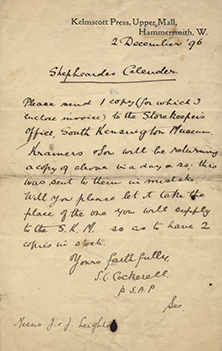 Kelmscott Press, Upper Mall,
Hammersmith, W.
2 December '96
Shepheardes Calender
Please send 1 copy (for which I
enclose invoice) to the Storekeepers
Office, South Kensington Museum.
Kramers & Co will be returning
a copy of above in a day or so: this
was sent to them in mistake
Will you please let it take the
place of the one you will supply
to the S.K.M. so as to have 2
copies in stock.
Yours faithfully,
S. C. Cockerell
Sec
Messrs J. & J. Leighton